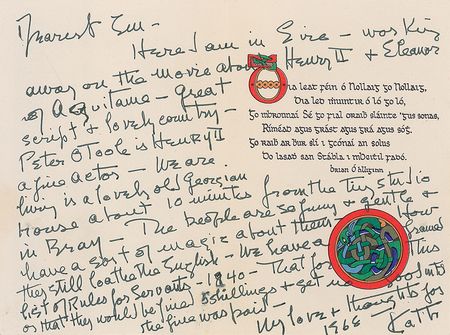 Dearest Em -
Here I am in Eire - working
away on the movie about Henry II & Eleanor
of Aquitaine - Great
script & lovely country -
Peter O'Toole is Henry II
a fine actor - We are
living in a lovely old Georgian
House about 10 minutes from the tiny studio
in Bray - The people are so funny & gentle &
have a sort of magic about them - How
they still loathe the English - We have a framed
list of Rules for Servants - 1840 - That for this
or that they would be fined 5 shillings & get no food until
the fine was paid -
My love & thoughts for
1968 Kath
Dia leat féin ó Nollaig go Nollaig,
Dia led ṁuintir ó ló go ló,
Go mbronnaí Sé go fial oraiḃ sláinte 'gus sonas,
Ríméad agus grást agus grá agus sóġ,
Go raiḃ ar ḃur slí i gcónaí an solas
Do lasaḋ san Stábla i mbeitil fadó.
brian